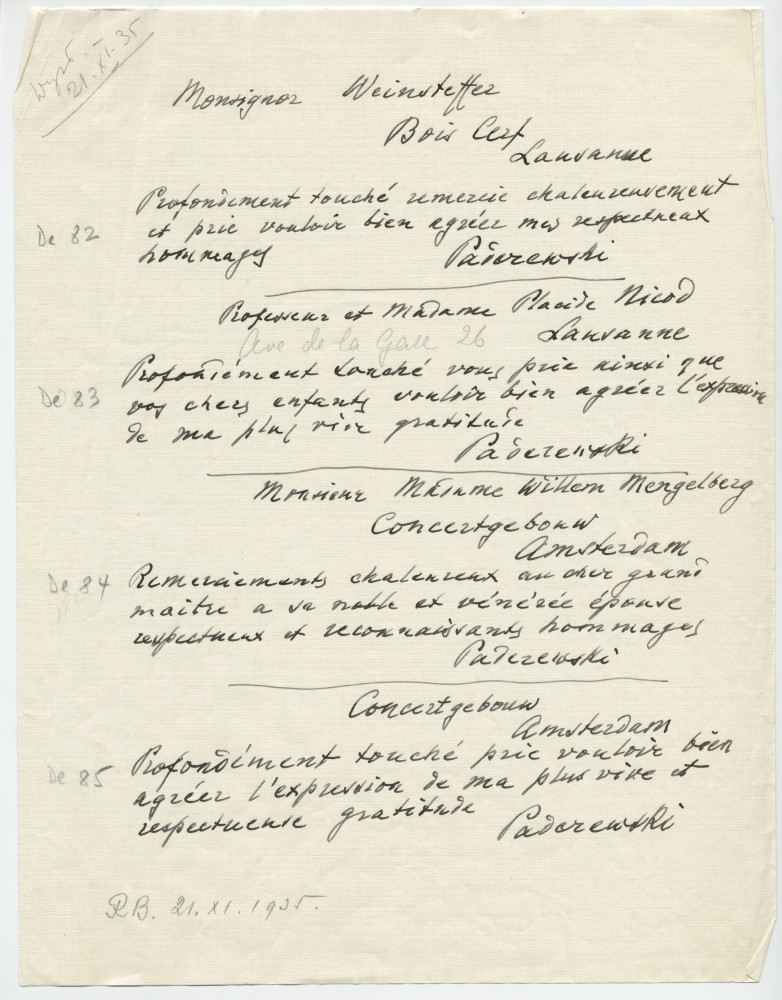 Wysł.
21.XI.35
Monsignor Weinsteffer
Bois Cerf
Lausanne
De 82
Profondément touché remercie chaleureusement
et prie vouloir bien agréer mes respectueux
hommages
Paderewski
Professeur et Madame Placide Nicod
Ave de la Gare 26 Lausanne
De 83
Profondément touché vous prie ainsi que
vos chers enfants vouloir bien agréer l'expression
de ma plus vive gratitude
Paderewski
Monsieur Madame Willem Mengelberg
Concertgebouw
Amsterdam
De 84
Remerciements chaleureux au cher grand
maitre a sa noble et vénérée épouse
respectueux et reconnaissants hommages
Paderewski
Concertgebouw
Amsterdam
De 85
Profondément touché prie vouloir bien
agréer l'expression de ma plus vive et
respectueuse gratitude
Paderewski
RB. 21.XI.1935.